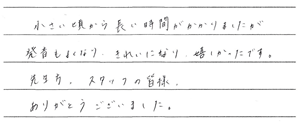 小さい頃から長い時間がかかりましたが
発音もよくなり、きれいになり、嬉しかったです。
先生方、スタッフの皆様、
ありがとうございました。